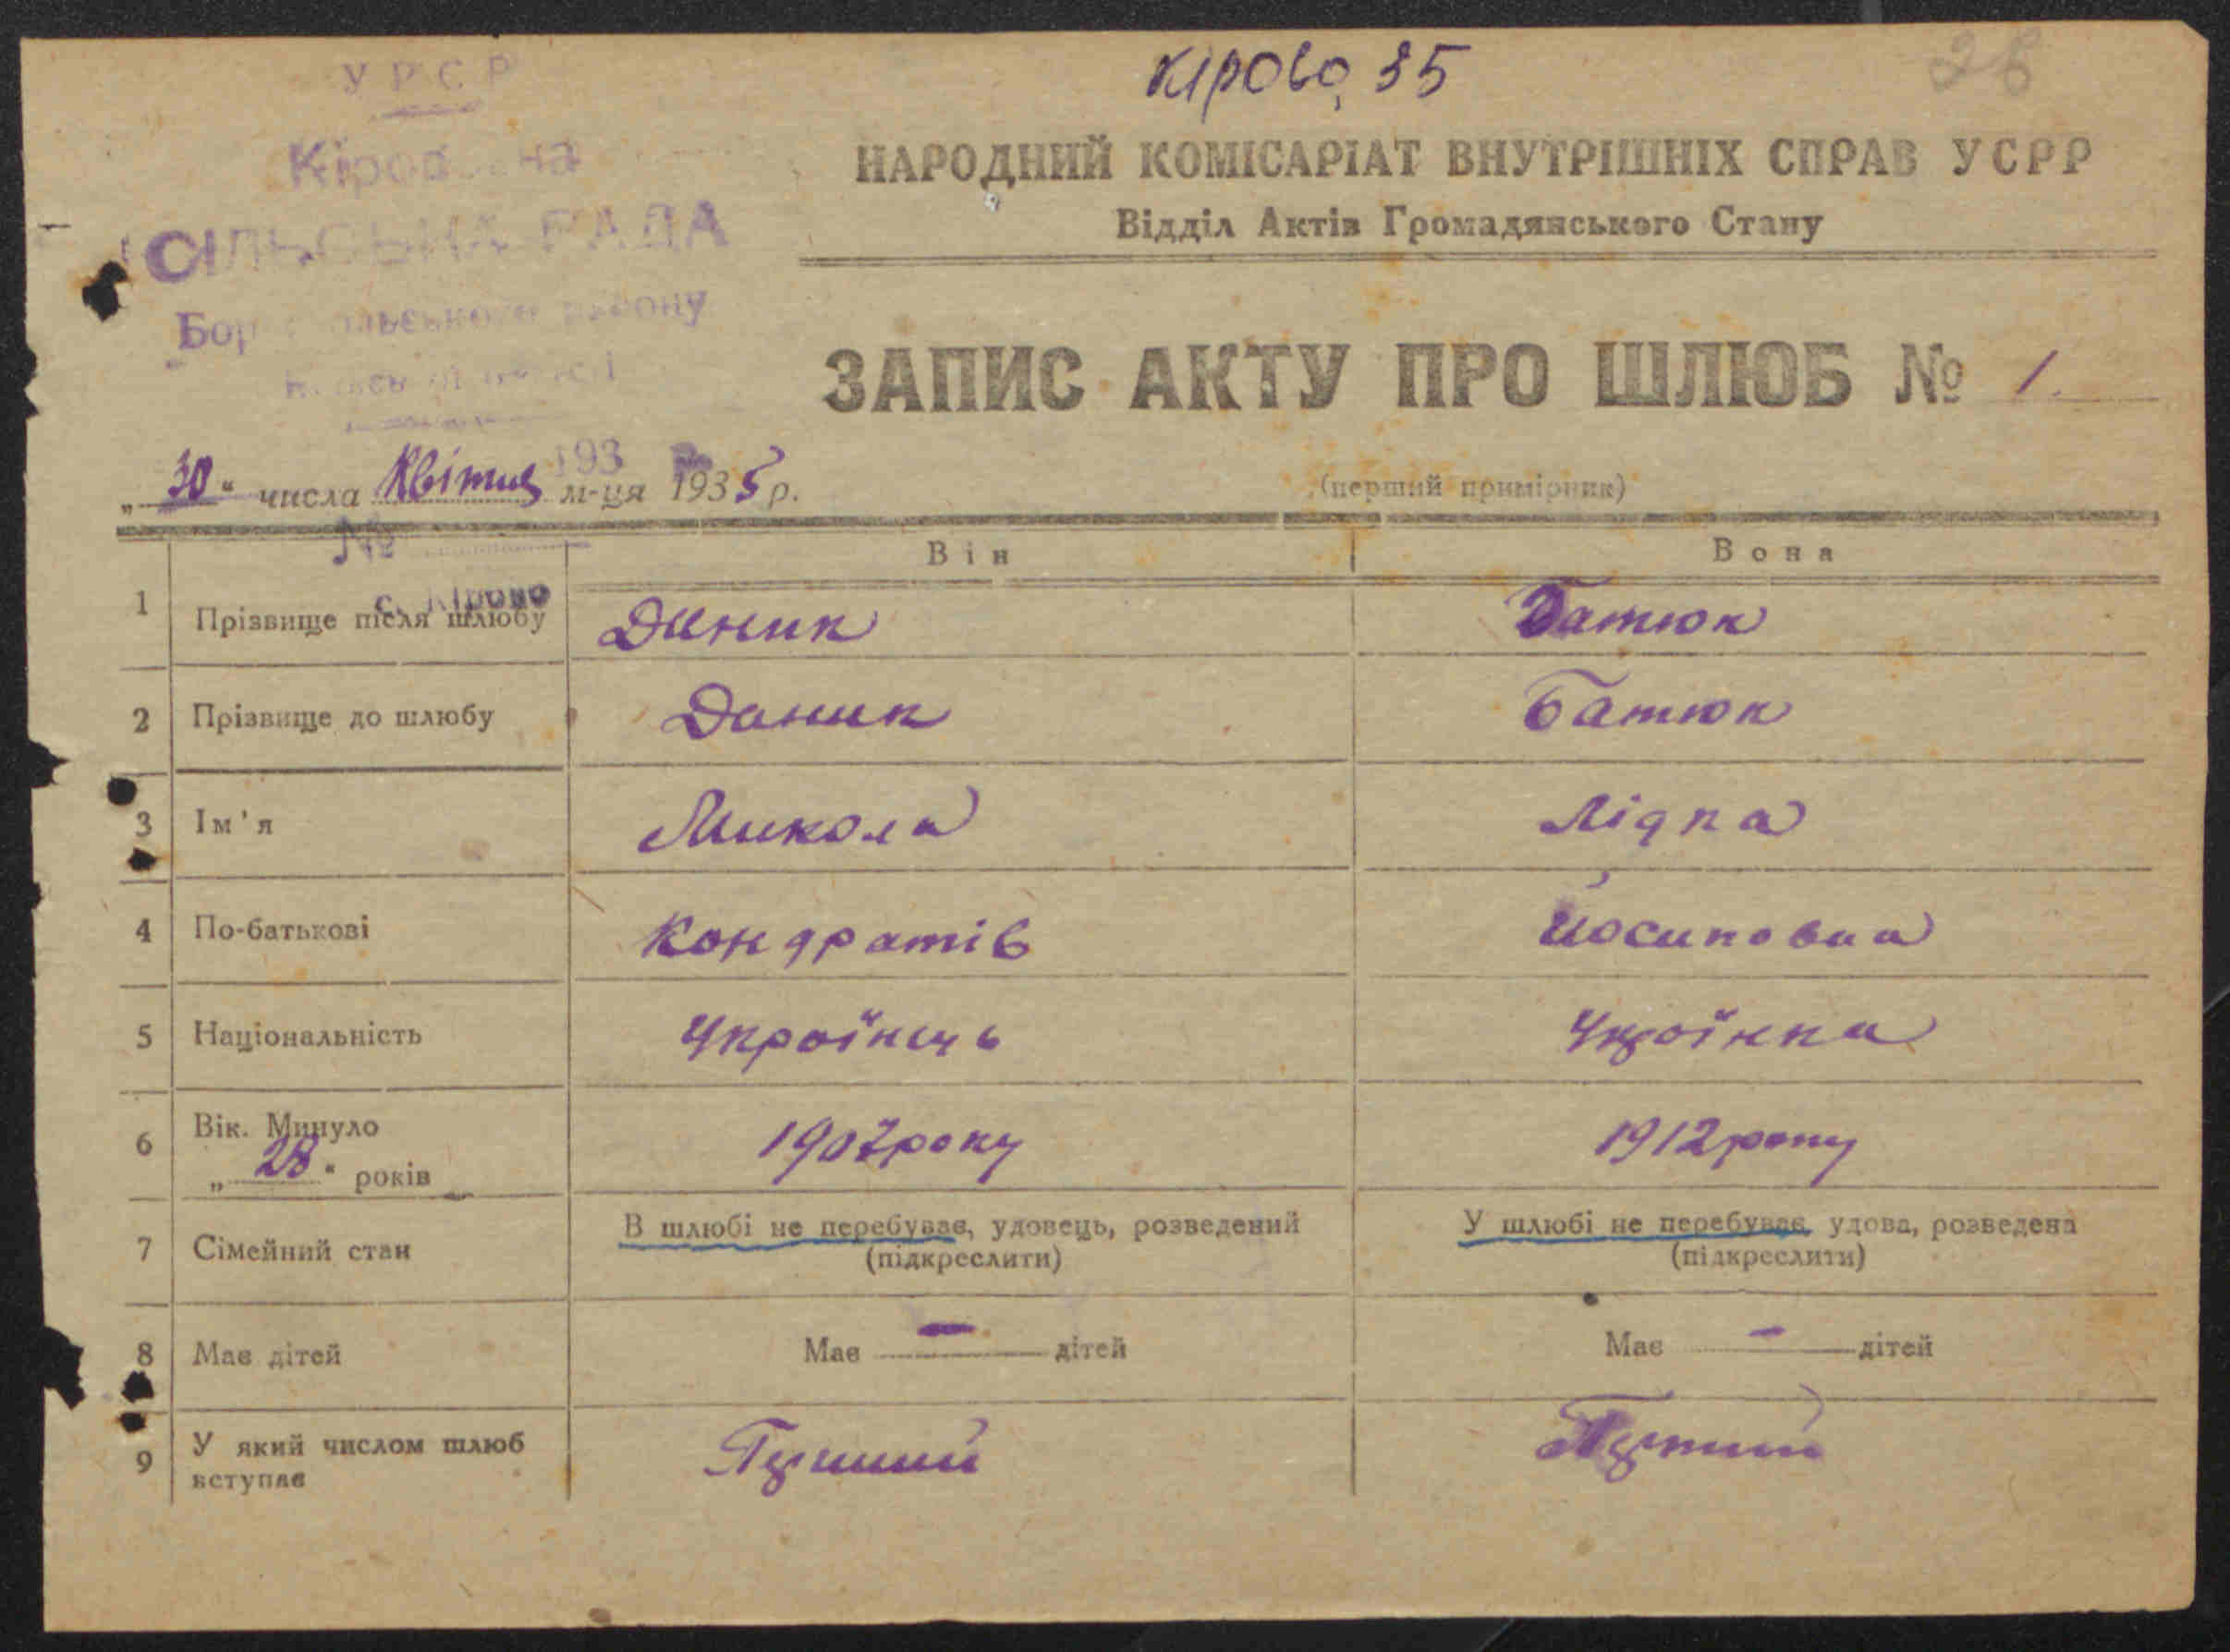 УРСР
СІЛЬСЬКА РАДА
193
№
с. Кірово
Кірово, 35
28
НАРОДНИЙ КОМІСАРІАТ ВНУТРІШНІХ СПРАВ УСРР
Відділ Актів Громадянського Стану
ЗАПИС АКТУ ПРО ШЛЮБ № 1.
„30“ числа Квітня м-ця 1935 р.
(перший примірник)
Він Вона
1 Прізвище після шлюбу Даник Батюк
2 Прізвище до шлюбу Даник Батюк
3 Ім'я Микола Лідка
4 По-батькові Кондратів Йосиповна
5 Національність Українець Українка
6 Вік. Минуло „28“ років 1907 року 1912 року
7 Сімейний стан В шлюбі не перебуває, удовець, розведений (підкреслити) У шлюбі не перебуває, удова, розведена (підкреслити)
8 Має дітей Має — дітей Має — дітей
9 У який числом шлюб вступає Перший Перший